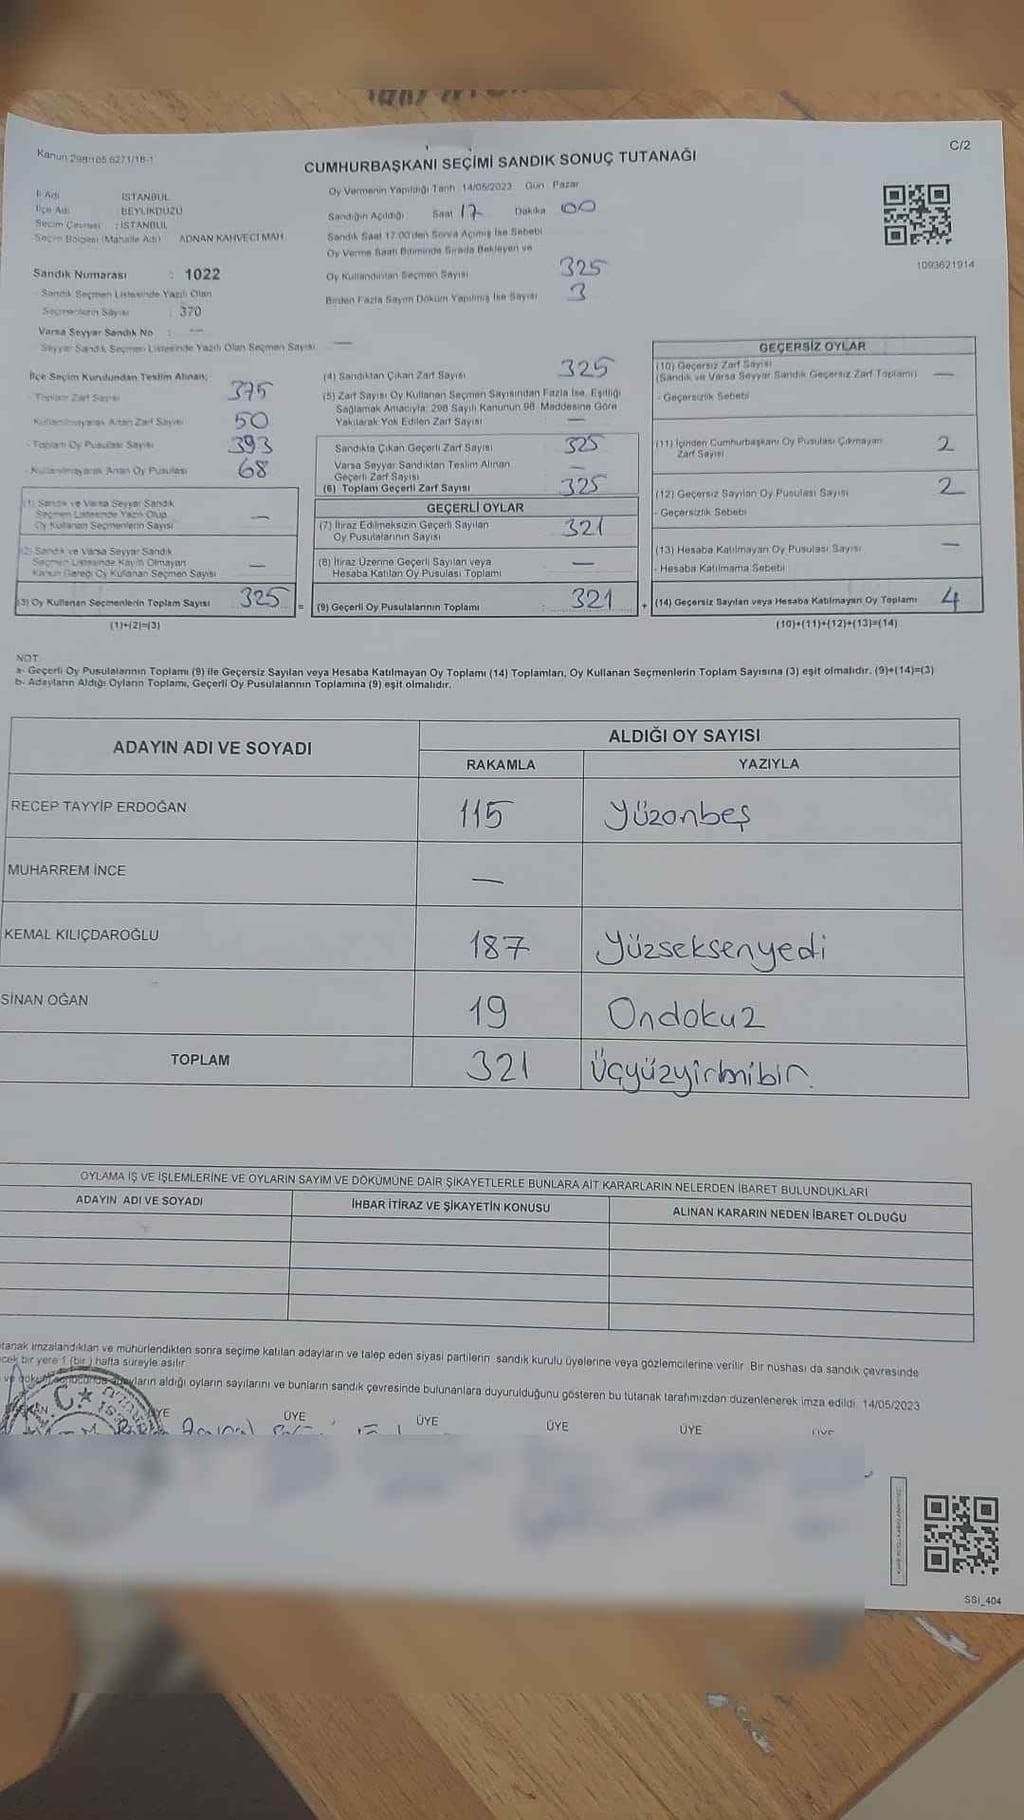 Kanun 298/105 6271/18-1
C/2
CUMHURBAŞKANI SEÇİMİ SANDIK SONUÇ TUTANAĞI
İl Adı İSTANBUL
İlçe Adı BEYLİKDÜZÜ
Seçim Çevresi : İSTANBUL
Seçim Bölgesi (Mahalle Adı) ADNAN KAHVECİ MAH.
Sandık Numarası : 1022
- Sandık Seçmen Listesinde Yazılı Olan
Seçmenlerin Sayısı : 370
Varsa Seyyar Sandık No : —
Seyyar Sandık Seçmen Listesinde Yazılı Olan Seçmen Sayısı —
Oy Vermenin Yapıldığı Tarih 14/05/2023 Gün Pazar
Sandığın Açıldığı Saat 17 Dakika 00
Sandık Saat 17:00'den Sonra Açılmış İse Sebebi
Oy Verme Saati Bitiminde Sırada Bekleyen ve
Oy Kullandırılan Seçmen Sayısı 325
Birden Fazla Sayım Döküm Yapılmış İse Sayısı 3
1093621914
İlçe Seçim Kurulundan Teslim Alınan;
- Toplam Zarf Sayısı 375
Kullanılmayarak Artan Zarf Sayısı 50
- Toplam Oy Pusulası Sayısı 393
- Kullanılmayarak Artan Oy Pusulası 68
(1) Sandık ve Varsa Seyyar Sandık
Seçmen Listesinde Yazılı Olup
Oy Kullanan Seçmenlerin Sayısı —
(2) Sandık ve Varsa Seyyar Sandık
Seçmen Listesinde Kayıtlı Olmayan
Kanun Gereği Oy Kullanan Seçmen Sayısı —
(3) Oy Kullanan Seçmenlerin Toplam Sayısı 325 =
(1)+(2)=(3)
(4) Sandıktan Çıkan Zarf Sayısı 325
(5) Zarf Sayısı Oy Kullanan Seçmen Sayısından Fazla İse, Eşitliği
Sağlamak Amacıyla; 298 Sayılı Kanunun 98. Maddesine Göre
Yakılarak Yok Edilen Zarf Sayısı —
Sandıkta Çıkan Geçerli Zarf Sayısı 325
Varsa Seyyar Sandıktan Teslim Alınan
Geçerli Zarf Sayısı —
(6) Toplam Geçerli Zarf Sayısı 325
GEÇERLİ OYLAR
(7) İtiraz Edilmeksizin Geçerli Sayılan
Oy Pusulalarının Sayısı 321
(8) İtiraz Üzerine Geçerli Sayılan veya
Hesaba Katılan Oy Pusulası Toplamı —
(9) Geçerli Oy Pusulalarının Toplamı : 321 +
GEÇERSİZ OYLAR
(10) Geçersiz Zarf Sayısı
(Sandık ve Varsa Seyyar Sandık Geçersiz Zarf Toplamı) —
- Geçersizlik Sebebi
(11) İçinden Cumhurbaşkanı Oy Pusulası Çıkmayan
Zarf Sayısı 2
(12) Geçersiz Sayılan Oy Pusulası Sayısı 2
- Geçersizlik Sebebi
(13) Hesaba Katılmayan Oy Pusulası Sayısı —
- Hesaba Katılmama Sebebi
(14) Geçersiz Sayılan veya Hesaba Katılmayan Oy Toplamı 4
(10)+(11)+(12)+(13)=(14)
NOT:
a- Geçerli Oy Pusulalarının Toplamı (9) ile Geçersiz Sayılan veya Hesaba Katılmayan Oy Toplamı (14) Toplamları, Oy Kullanan Seçmenlerin Toplam Sayısına (3) eşit olmalıdır. (9)+(14)=(3)
b- Adayların Aldığı Oyların Toplamı, Geçerli Oy Pusulalarının Toplamına (9) eşit olmalıdır.
ADAYIN ADI VE SOYADI
ALDIĞI OY SAYISI
RAKAMLA YAZIYLA
RECEP TAYYİP ERDOĞAN 115 Yüzonbeş
MUHARREM İNCE —
KEMAL KILIÇDAROĞLU 187 Yüzseksenyedi
SİNAN OĞAN 19 Ondokuz
TOPLAM 321 Üçyüzyirmibir.
OYLAMA İŞ VE İŞLEMLERİNE VE OYLARIN SAYIM VE DÖKÜMÜNE DAİR ŞİKAYETLERLE BUNLARA AİT KARARLARIN NELERDEN İBARET BULUNDUKLARI
ADAYIN ADI VE SOYADI İHBAR İTİRAZ VE ŞİKAYETİN KONUSU ALINAN KARARIN NEDEN İBARET OLDUĞU
tanak imzalandıktan ve mühürlendikten sonra seçime katılan adayların ve talep eden siyasi partilerin sandık kurulu üyelerine veya gözlemcilerine verilir Bir nüshası da sandık çevresinde
cek bir yere 1 (bir) hafta süreyle asılır
adayların aldığı oyların sayılarını ve bunların sandık çevresinde bulunanlara duyurulduğunu gösteren bu tutanak tarafımızdan düzenlenerek imza edildi. 14/05/2023
ÜYE ÜYE ÜYE ÜYE
SSI_404